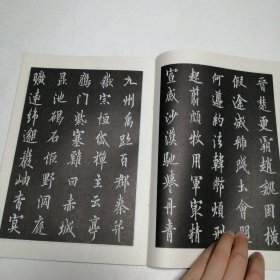 晉楚更霸趙困橫
假途滅虢踐土會盟
何遵約法韓弊煩刑
起翦頗牧用軍㝡精
宣威沙漠馳譽丹青
九州禹跡百郡秦并
嶽宗恒岱禪主云亭
鴈門紫塞雞田赤城
昆池碣石鉅野洞庭
曠遠綿邈巖岫杳冥